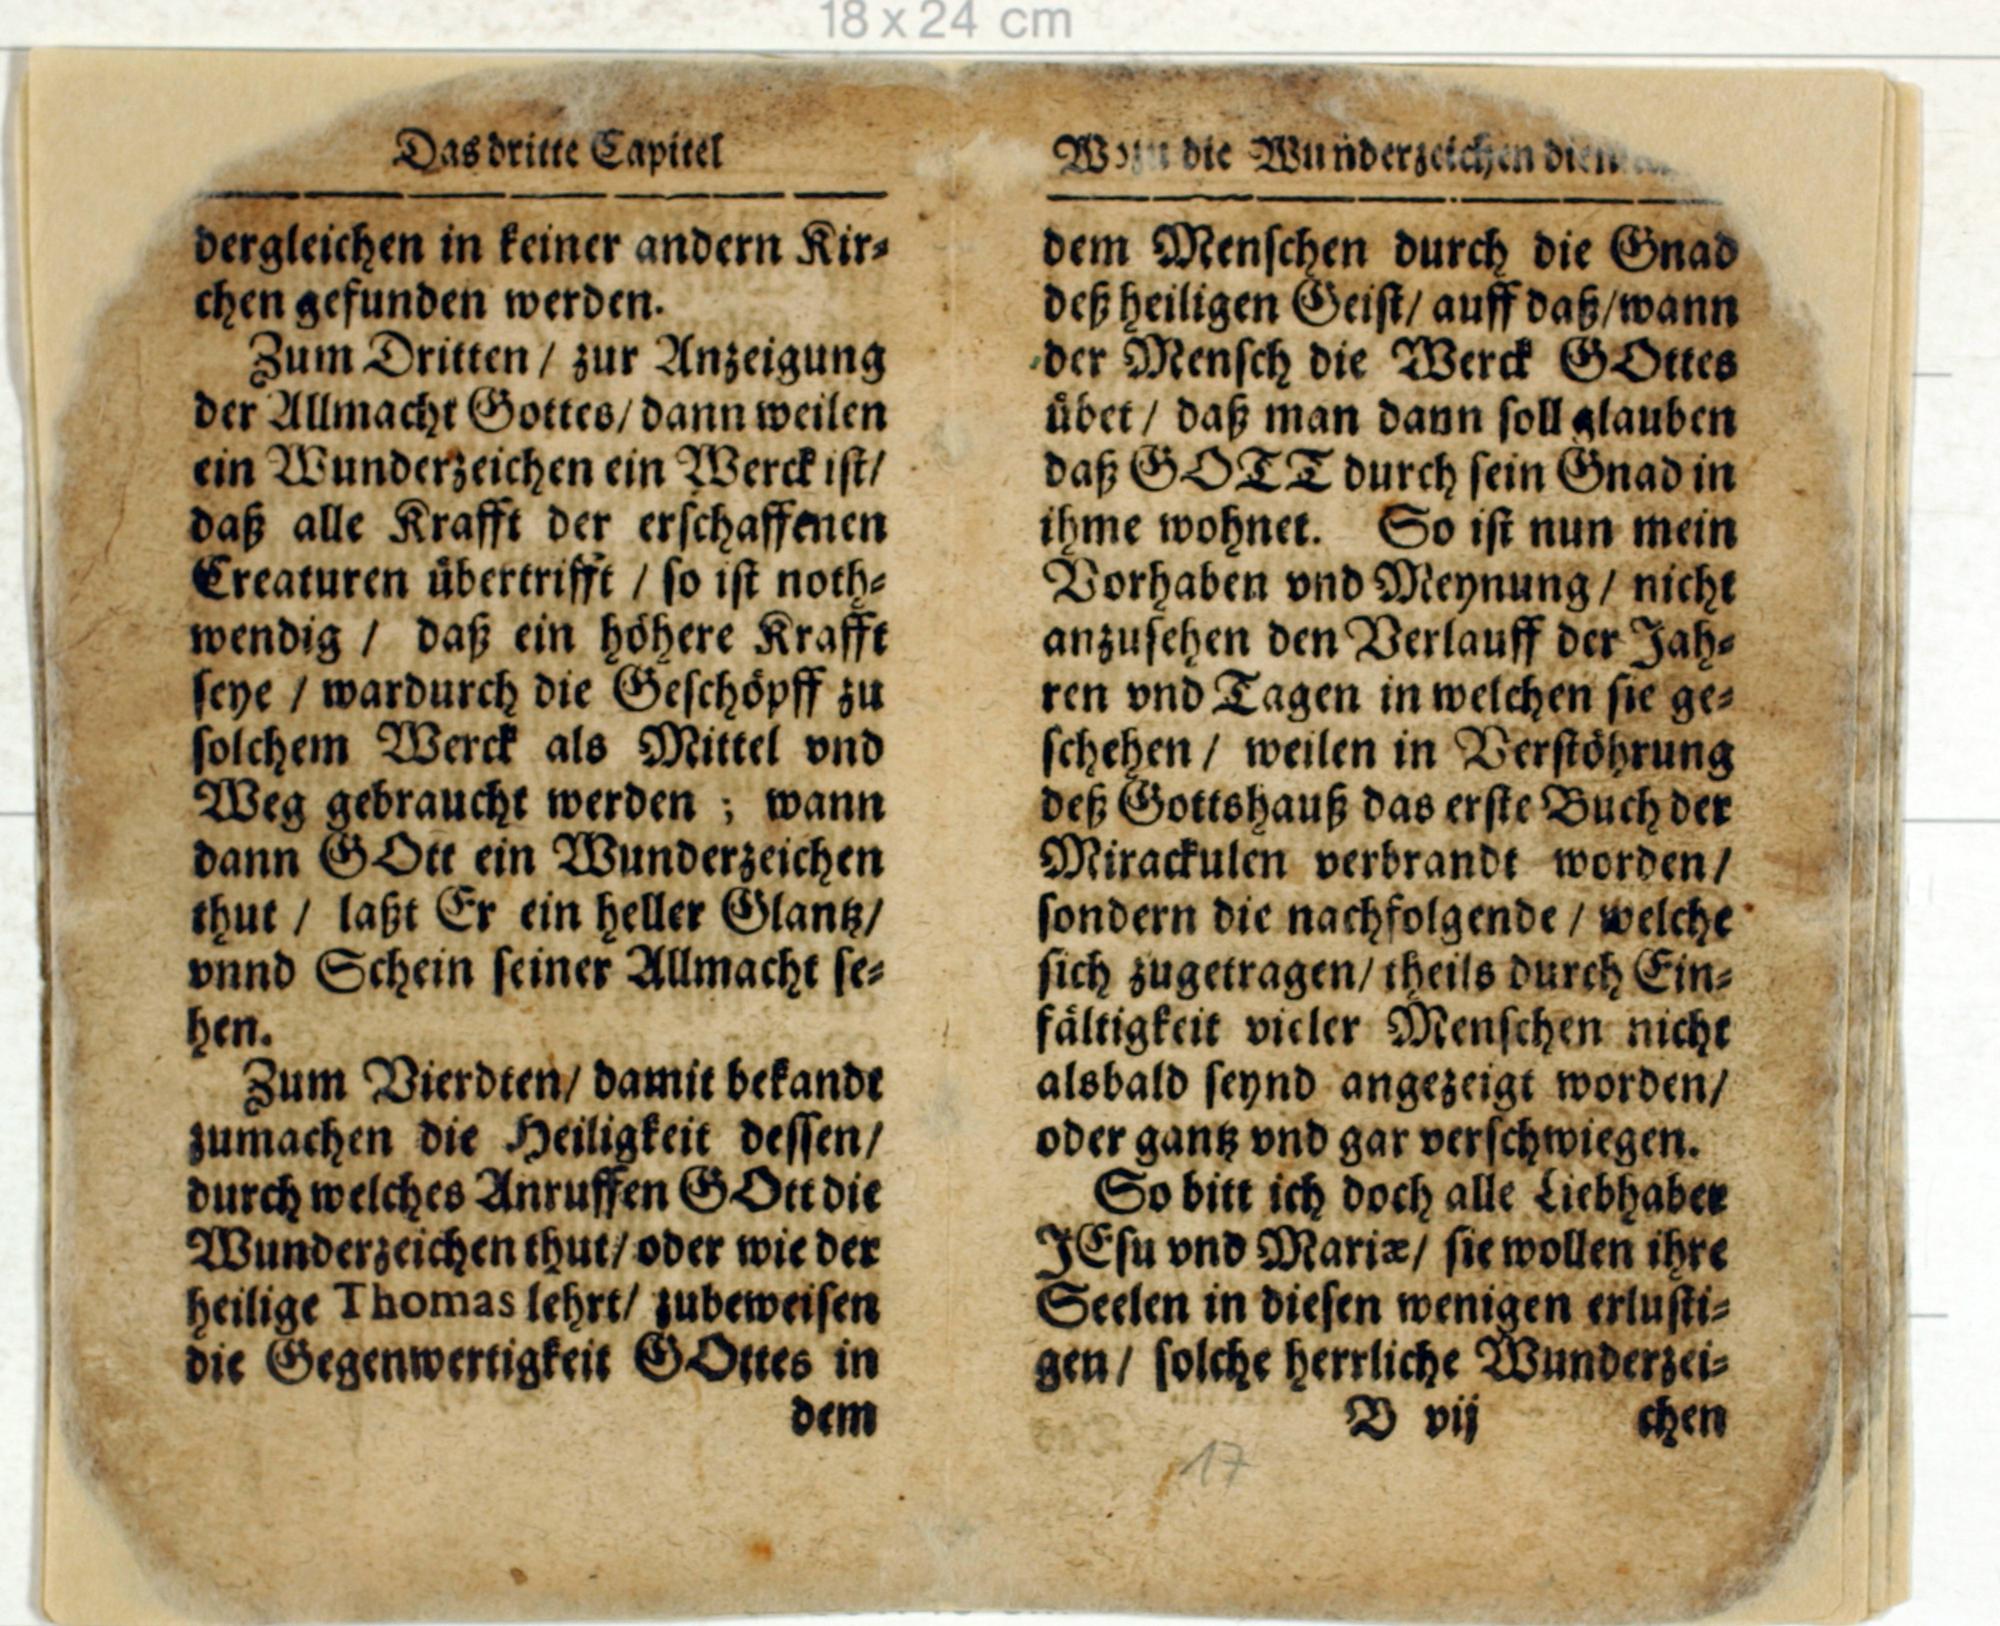 18 x 24 cm
Das dritte Capitel
dergleichen in keiner andern Kir-
chen gefunden werden.
Zum Dritten / zur Anzeigung
der Allmacht Gottes / dann weilen
ein Wunderzeichen ein Werck ist /
daß alle Krafft der erschaffenen
Creaturen übertrifft / so ist noth-
wendig / daß ein höhere Krafft
seye / wardurch die Geschöpff zu
solchem Werck als Mittel vnd
Weg gebraucht werden ; wann
dann GOtt ein Wunderzeichen
thut / laßt Er ein heller Glantz /
vnnd Schein seiner Allmacht se-
hen.
Zum Vierdten / damit bekandt
zumachen die Heiligkeit dessen /
durch welches Anruffen GOtt die
Wunderzeichen thut / oder wie der
heilige Thomas lehrt / zubeweisen
die Gegenwertigkeit GOttes in
dem
Wozu die Wunderzeichen
dem Menschen durch die Gnad
deß heiligen Geist / auff daß / wann
der Mensch die Werck GOttes
übet / daß man dann soll glauben
daß GOTT durch sein Gnad in
ihme wohnet. So ist nun mein
Vorhaben vnd Meynung / nicht
anzusehen den Verlauff der Jah-
ren vnd Tagen in welchen sie ge-
schehen / weilen in Verstöhrung
deß Gottshauß das erste Buch der
Mirackulen verbrandt worden /
sondern die nachfolgende / welche
sich zugetragen / theils durch Ein-
fältigkeit vieler Menschen nicht
alsbald seynd angezeigt worden /
oder gantz vnd gar verschwiegen.
So bitt ich doch alle Liebhaber
JEsu vnd Mariæ / sie wollen ihre
Seelen in diesen wenigen erlusti-
gen / solche herrliche Wunderzei-
B vij chen
17